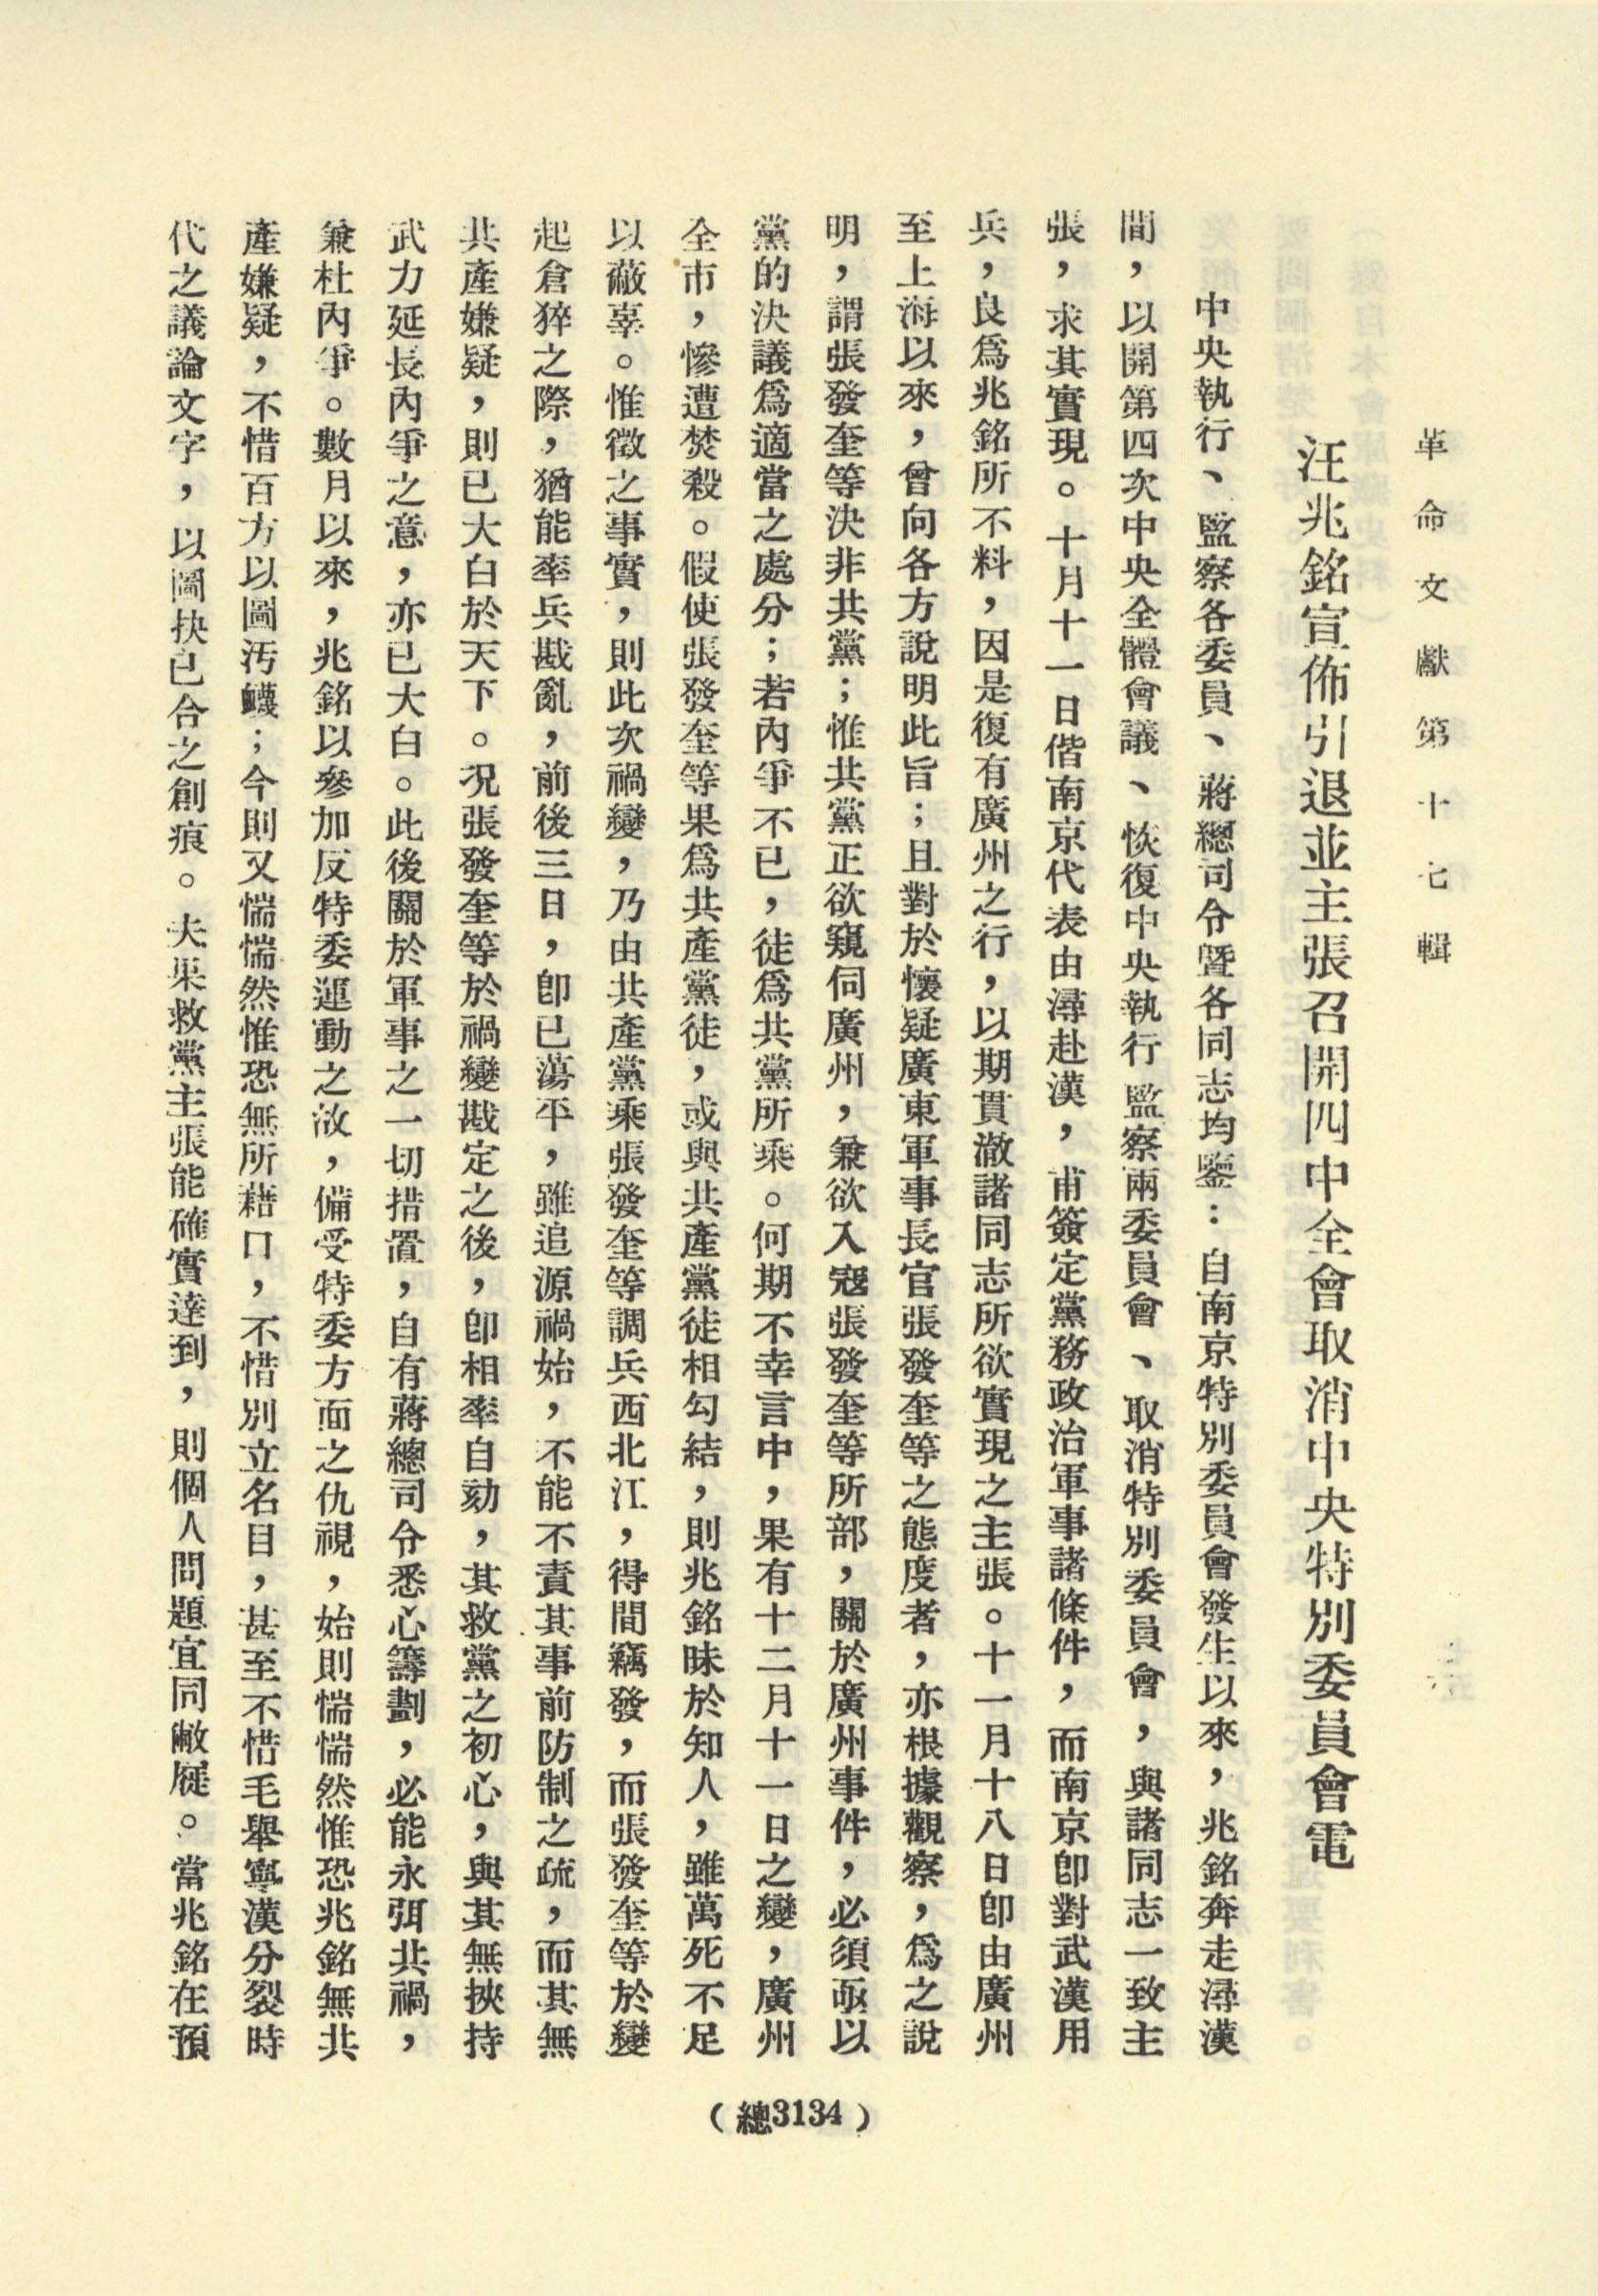 革命文獻第十七輯
汪兆銘宣佈引退並主張召開四中全會取消中央特別委員會電
中央執行、監察各委員、蔣總司令暨各同志均鑒：自南京特別委員會發生以來，兆銘奔走潯漢
間，以開第四次中央全體會議、恢復中央執行監察兩委員會、取消特別委員會，與諸同志一致主
張，求其實現。十月十一日偕南京代表由潯赴漢，甫簽定黨務政治軍事諸條件，而南京卽對武漢用
兵，良爲兆銘所不料，因是復有廣州之行，以期貫澈諸同志所欲實現之主張。十一月十八日卽由廣州
至上海以來，曾向各方說明此旨；且對於懷疑廣東軍事長官張發奎等之態度者，亦根據觀察，爲之說
明，謂張發奎等決非共黨；惟共黨正欲窺伺廣州，兼欲入寇張發奎等所部，關於廣州事件，必須亟以
黨的決議爲適當之處分；若內爭不已，徒爲共黨所乘。何期不幸言中，果有十二月十一日之變，廣州
全市，慘遭焚殺。假使張發奎等果爲共產黨徒，或與共產黨徒相勾結，則兆銘昧於知人，雖萬死不足
以蔽辜。惟徵之事實，則此次禍變，乃由共產黨乘張發奎等調兵西北江，得間竊發，而張發奎等於變
起倉猝之際，猶能率兵戡亂，前後三日，卽已蕩平，雖追源禍始，不能不責其事前防制之疏，而其無
共產嫌疑，則已大白於天下。况張發奎等於禍變戡定之後，卽相率自劾，其救黨之初心，與其無挾持
武力延長內爭之意，亦已大白。此後關於軍事之一切措置，自有蔣總司令悉心籌劃，必能永弭共禍，
兼杜內爭。數月以來，兆銘以參加反特委運動之故，備受特委方面之仇視，始則惴惴然惟恐兆銘無共
產嫌疑，不惜百方以圖汚衊；今則又惴惴然惟恐無所藉口，不惜別立名目，甚至不惜毛舉寧漢分裂時
代之議論文字，以圖抉已合之創痕。夫果救黨主張能確實達到，則個人問題宜同敝屣。當兆銘在預
（總3134）